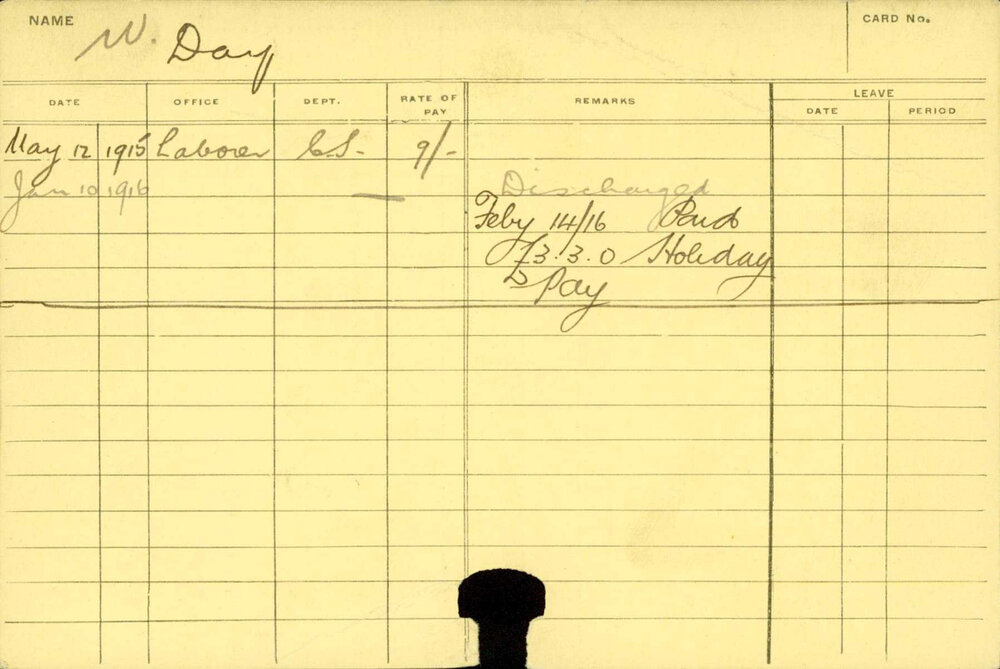 NAME W. Day CARD No.
DATE OFFICE DEPT. RATE OF PAY REMARKS LEAVE
DATE PERIOD
May 12 1915 Laborer C.S. 9/-
Jan 10 1916 — Discharged
Feby 14/16 Paid
£3.3.0 Holiday
Pay